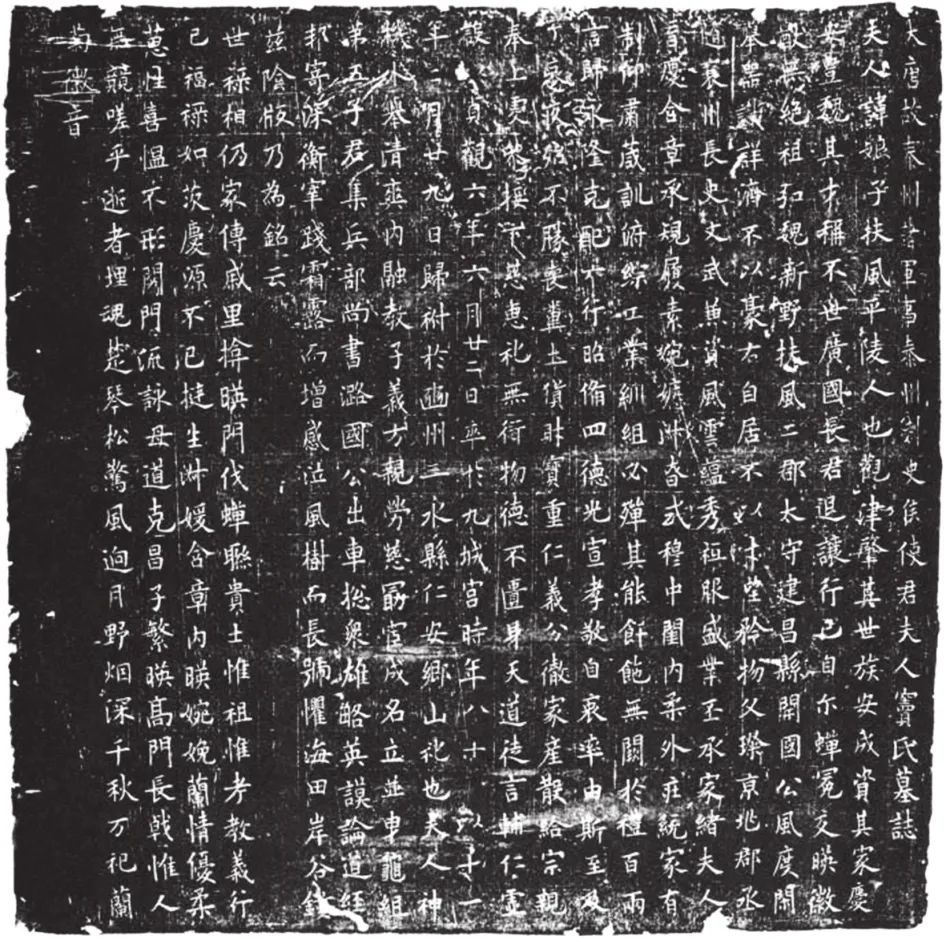 大唐故秦州諸軍事秦州刺史侯使君夫人竇氏墓誌
夫人諱娘子扶風平陵人也觀津肇其世族安成資其家慶
安豐魏其才稱不世廣國長君退讓行己自尔蟬冕交暎徽
猷無絕祖弘魏新野扶風二郡太守建昌縣開國公風度閑
器識群濟不以豪右自居不以才望矜物父璨京兆郡丞
襄州長史文武兼資風雲蘊秀祖服盛業丕承家緒夫人
育慶含章承規履素婉嫕淋昚式穆中閨內柔外莊統家有
制仰肅嚴訓俯綜工業紃組必殫其能飦飽無闕於禮百兩
言歸永隆克配六行昭脩四德光宣孝敬自衷率由斯至及
丁哀疚殆不勝喪糞土貨財寶重仁義分徹家産散給宗親
奉上便衆接下慈惠祀無衍物德不亹身天道徒言輔仁靈
設貞觀六年六月廿二日卒於九城宮時年八十以十一
年二月廿九日歸祔於豳州三水縣仁安鄉山祀也夫人神
機水舉清塵內融教子義方親勞慈勗宦成名立並申龜組
弟五子君集兵部尚書潞國公出車捴衆雄略英謨論道經
邦寄深衡宰踐霜露而增感泣風樹而長號懼海田岸谷
玆陰版乃為銘云
世祿相仍家傳戚里揜暎門伐蟬聯貴士惟祖惟考教義行
己福祿如茨慶源不已挺生淋媛含章內暎婉娩蘭情優柔
蕙性喜愠不形閨門流詠母道克昌子繁暎高門長戟惟人
無競嗟乎逝者埋魂楚琴松驚風迥月野烟深千秋万祀蘭
菊徽音